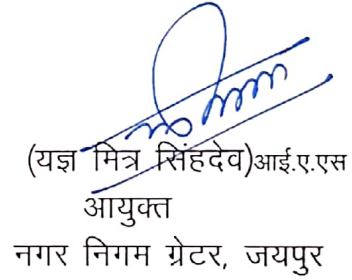 (यज्ञ मित्र सिंहदेव)आई.ए.एस
आयुक्त
नगर निगम ग्रेटर, जयपुर